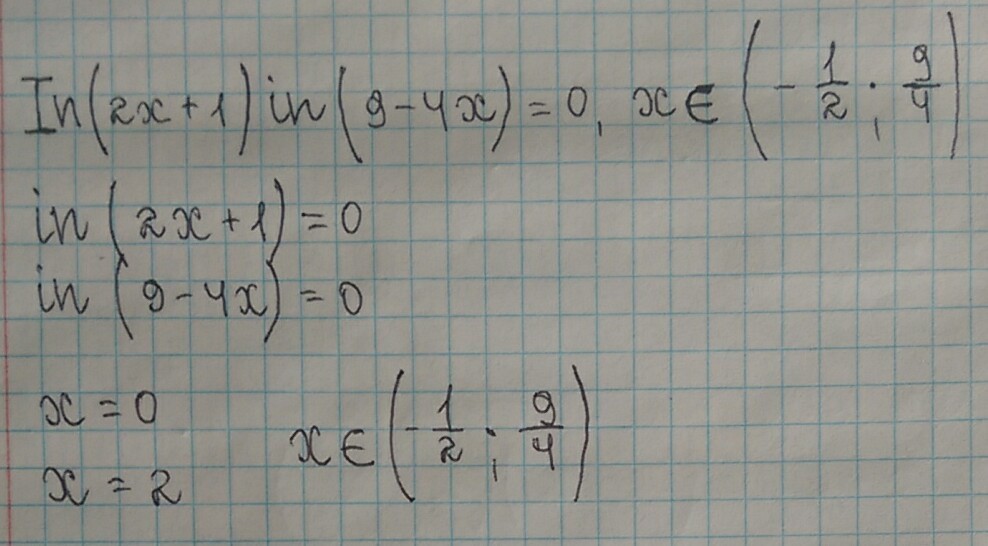 In(2x+1) in(9-4x)=0, x∈(-1/2; 9/4)
in(2x+1)=0
in(9-4x)=0
x=0
x=2 x∈(-1/2; 9/4)